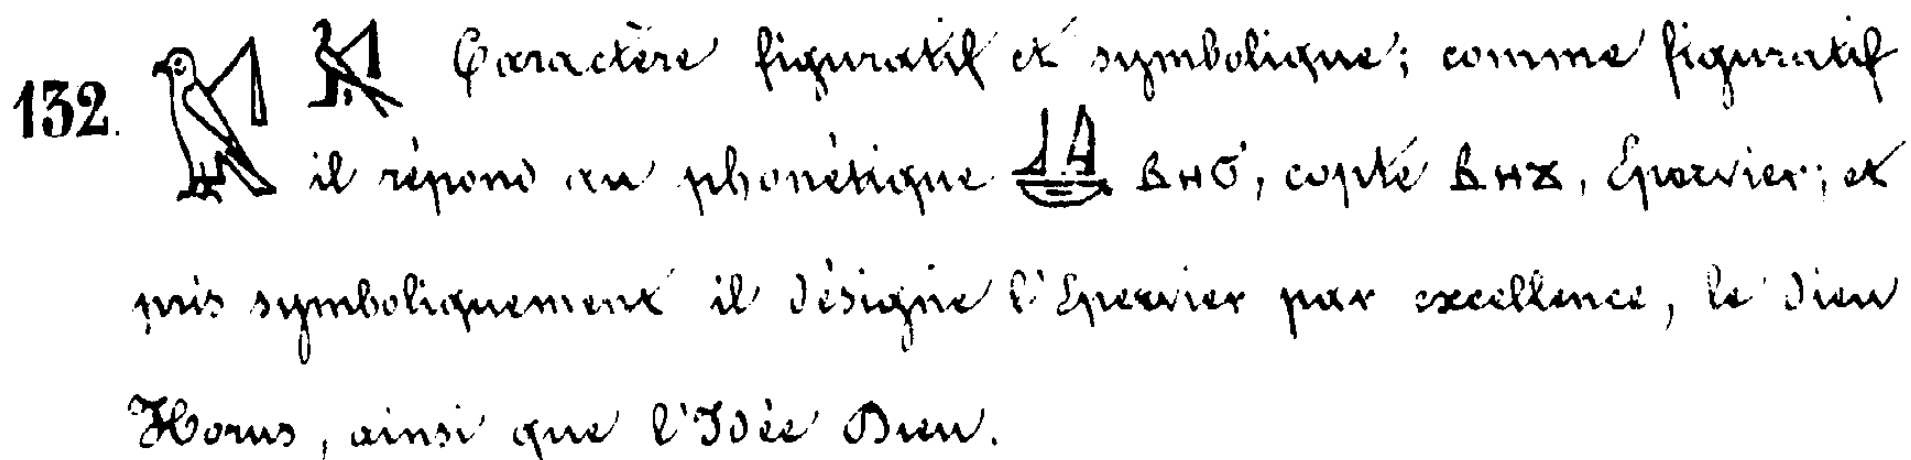 132. Caractère figuratif et symbolique; comme figuratif
il répond au phonétique ⲃⲏϭ, copte ⲃⲏϫ, Épervier; et
pris symboliquement il désigne l'Épervier par excellence, le dieu
Horus, ainsi que l'Idée Dieu.